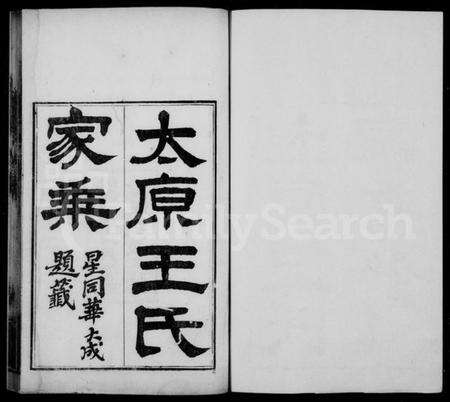 太原王氏
家乘
星同華大成
題籤
FamilySearch